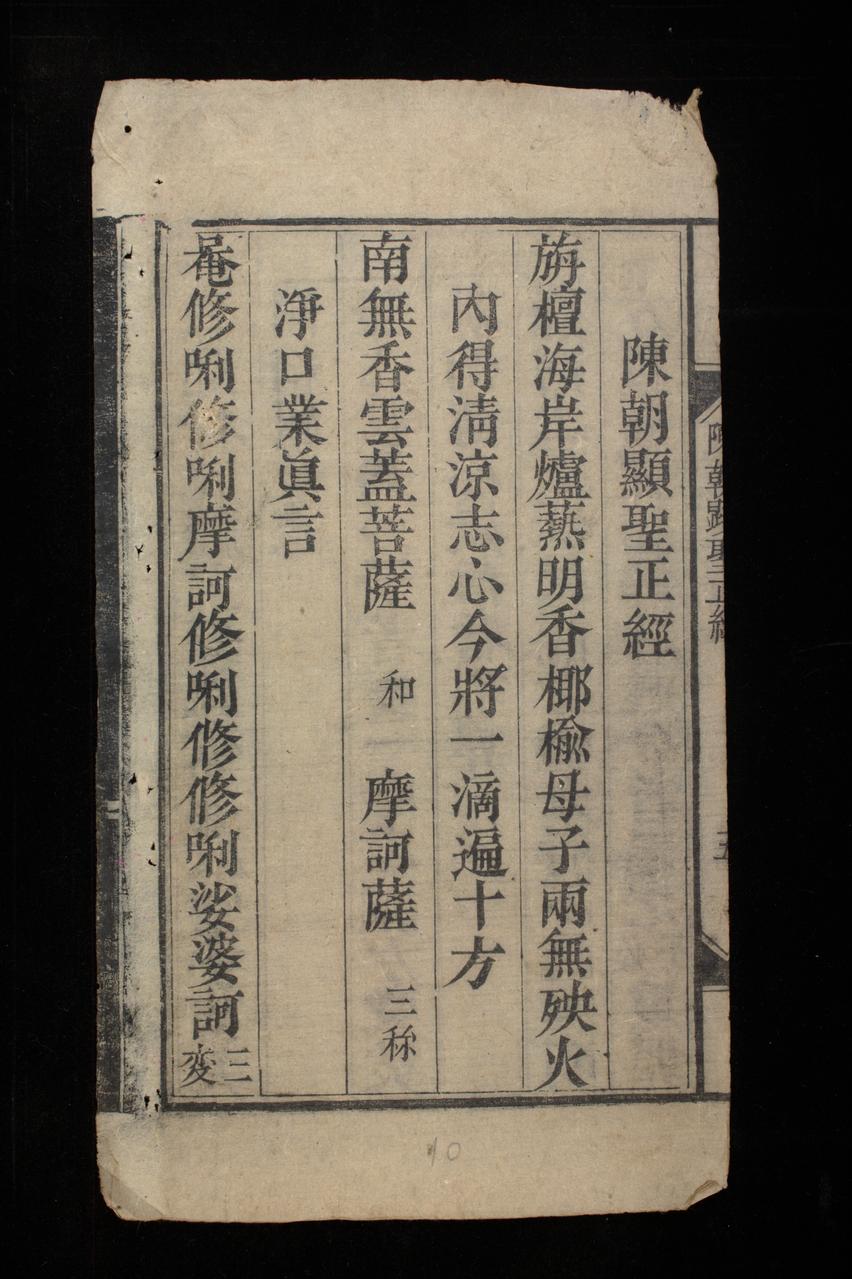 陳朝顯聖正經
五
陳朝顯聖正經
旃檀海岸爐爇明香椰榆母子兩無殃火
內得淸涼志心今將一滴遍十方
南無香雲蓋菩薩 和 一 摩訶薩 三稱
淨口業眞言
唵修唎修唎摩訶修唎修修唎娑婆訶 三変
10